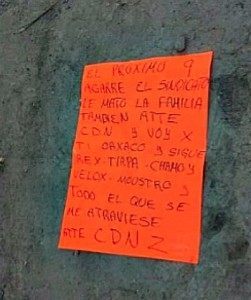 EL PROXIMO Q
AGARRE EL SINDICATO
LE MATO LA FAMILIA
TAMBIEN ATTE
CDN Y VOY X
TI OAXACO Y SIGUE
REX-TIRPA-CHAMOY
VELOX-MOUSTRO Y
TODO EL QUE SE
ME ATRAVIESE
ATTE CDNZ